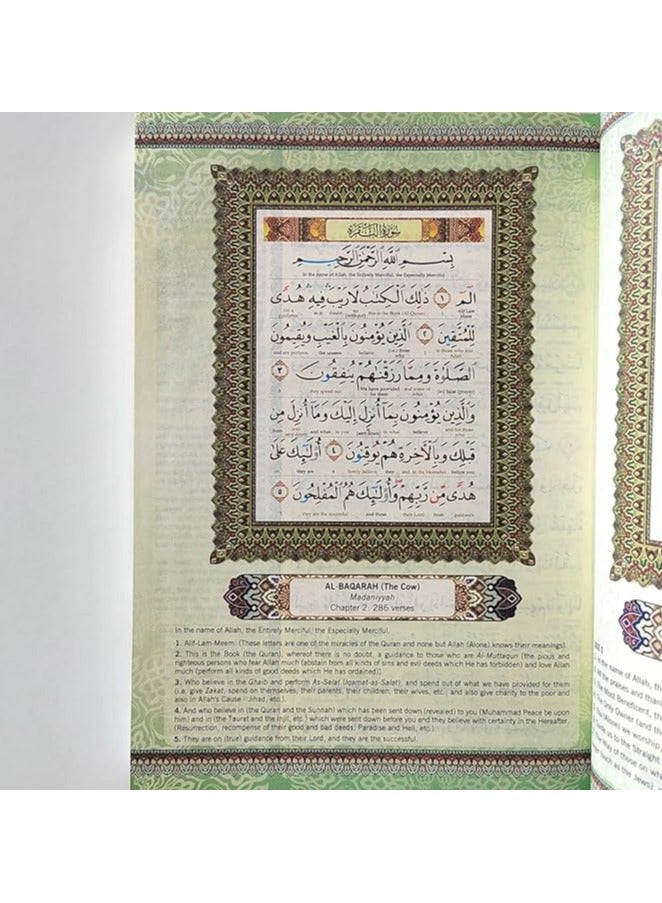 سورة البقرة
بِسْمِ اللَّهِ الرَّحْمَٰنِ الرَّحِيمِ
In the name of Allah, the Entirely Merciful, the Especially Merciful
الٓمٓ ١ ذَٰلِكَ الْكِتَابُ لَا رَيْبَ فِيهِ هُدًى
لِّلْمُتَّقِينَ ٢ الَّذِينَ يُؤْمِنُونَ بِالْغَيْبِ وَيُقِيمُونَ
الصَّلَاةَ وَمِمَّا رَزَقْنَاهُمْ يُنفِقُونَ ٣
وَالَّذِينَ يُؤْمِنُونَ بِمَا أُنزِلَ إِلَيْكَ وَمَا أُنزِلَ مِن
قَبْلِكَ وَبِالْآخِرَةِ هُمْ يُوقِنُونَ ٤ أُولَٰئِكَ عَلَىٰ
هُدًى مِّن رَّبِّهِمْ وَأُولَٰئِكَ هُمُ الْمُفْلِحُونَ ٥
AL-BAQARAH (The Cow)
Madaniyyah
Chapter 2. 286 verses
In the name of Allah, the Entirely Merciful, the Especially Merciful.
1. Alif-Lam-Meem. (These letters are one of the miracles of the Quran and none but Allah (Alone) knows their meanings).
2. This is the Book (the Quran), whereof there is no doubt, a guidance to those who are Al-Muttaqun (the pious and
righteous persons who fear Allah much (abstain from all kinds of sins and evil deeds which He has forbidden) and love Allah
much (perform all kinds of good deeds which He has ordained)].
3. Who believe in the Ghaib and perform As-Salat (Iqamat-as-Salat), and spend out of what we have provided for them
(i.e. give Zakat, spend on themselves, their parents, their children, their wives, etc., and also give charity to the poor and
also in Allah's Cause - Jihad, etc.).
4. And who believe in (the Quran and the Sunnah) which has been sent down (revealed) to you (Muhammad Peace be upon
him) and in (the Taurat and the Injil, etc.) which were sent down before you and they believe with certainty in the Hereafter.
(Resurrection, recompense of their good and bad deeds, Paradise and Hell, etc.).
5. They are on (true) guidance from their Lord, and they are the successful.
the name of Allah, the
all the praises and thank
The Most Beneficent, the
Only Owner (and the
(Alone) we worship,
Guide us to the Straight
Way of those on who
(such as the Jews),